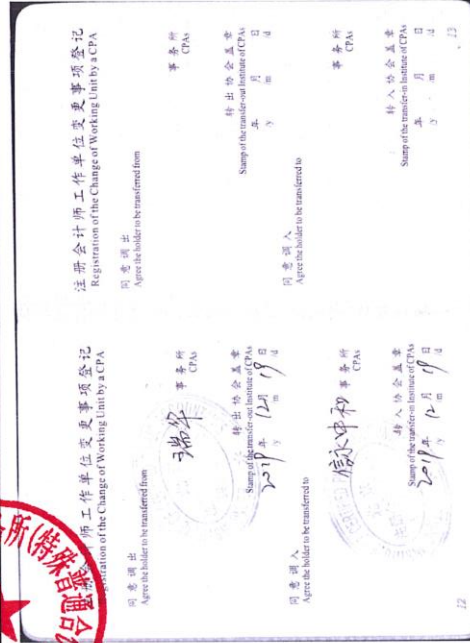 注册会计师工作单位变更事项登记
Registration of the Change of Working Unit by a CPA
同意调出
Agree the holder to be transferred from
瑞华 事务所
CPAs
转出协会盖章
Stamp of the transfer-out Institute of CPAs
2019年 12月 19日
/y /m /d
同意调入
Agree the holder to be transferred to
信永中和 事务所
CPAs
转入协会盖章
Stamp of the transfer-in Institute of CPAs
2019年 12月 19日
/y /m /d
12
所(特殊普通合
注册会计师工作单位变更事项登记
Registration of the Change of Working Unit by a CPA
同意调出
Agree the holder to be transferred from
事务所
CPAs
转出协会盖章
Stamp of the transfer-out Institute of CPAs
年 月 日
/y /m /d
同意调入
Agree the holder to be transferred to
事务所
CPAs
转入协会盖章
Stamp of the transfer-in Institute of CPAs
年 月 日
/y /m /d
13